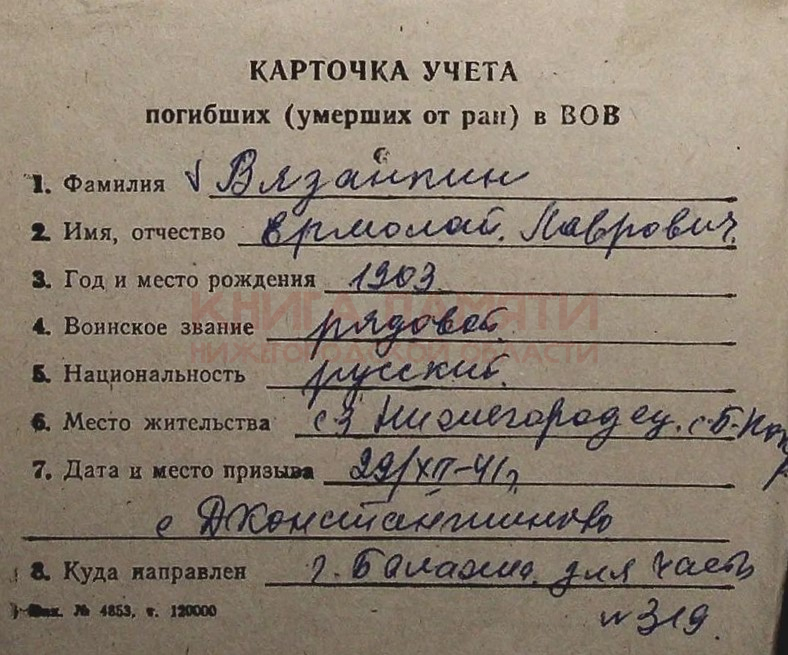 КАРТОЧКА УЧЕТА
погибших (умерших от ран) в ВОВ
1. Фамилия √ Вязанкин
2. Имя, отчество Ермолай. Лаврович.
3. Год и место рождения 1903
КНИГА ПАМЯТИ
4. Воинское звание рядовой.
НИЖЕГОРОДСКОЙ ОБЛАСТИ
5. Национальность русский.
6. Место жительства сз Нижегородец. с-Б-
7. Дата и место призыва 29/XII-41г,
с ДКонстантиново
8. Куда направлен г. Балахна. для часть
№ 4853, т. 120000
№ 319.